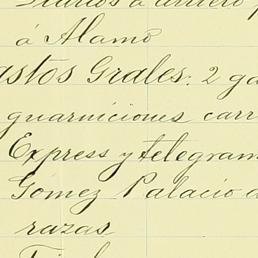 á Alamo
astos Grales: 2 ga
guarniciones carr
Express y telegram
Gómez Palacio a
razas